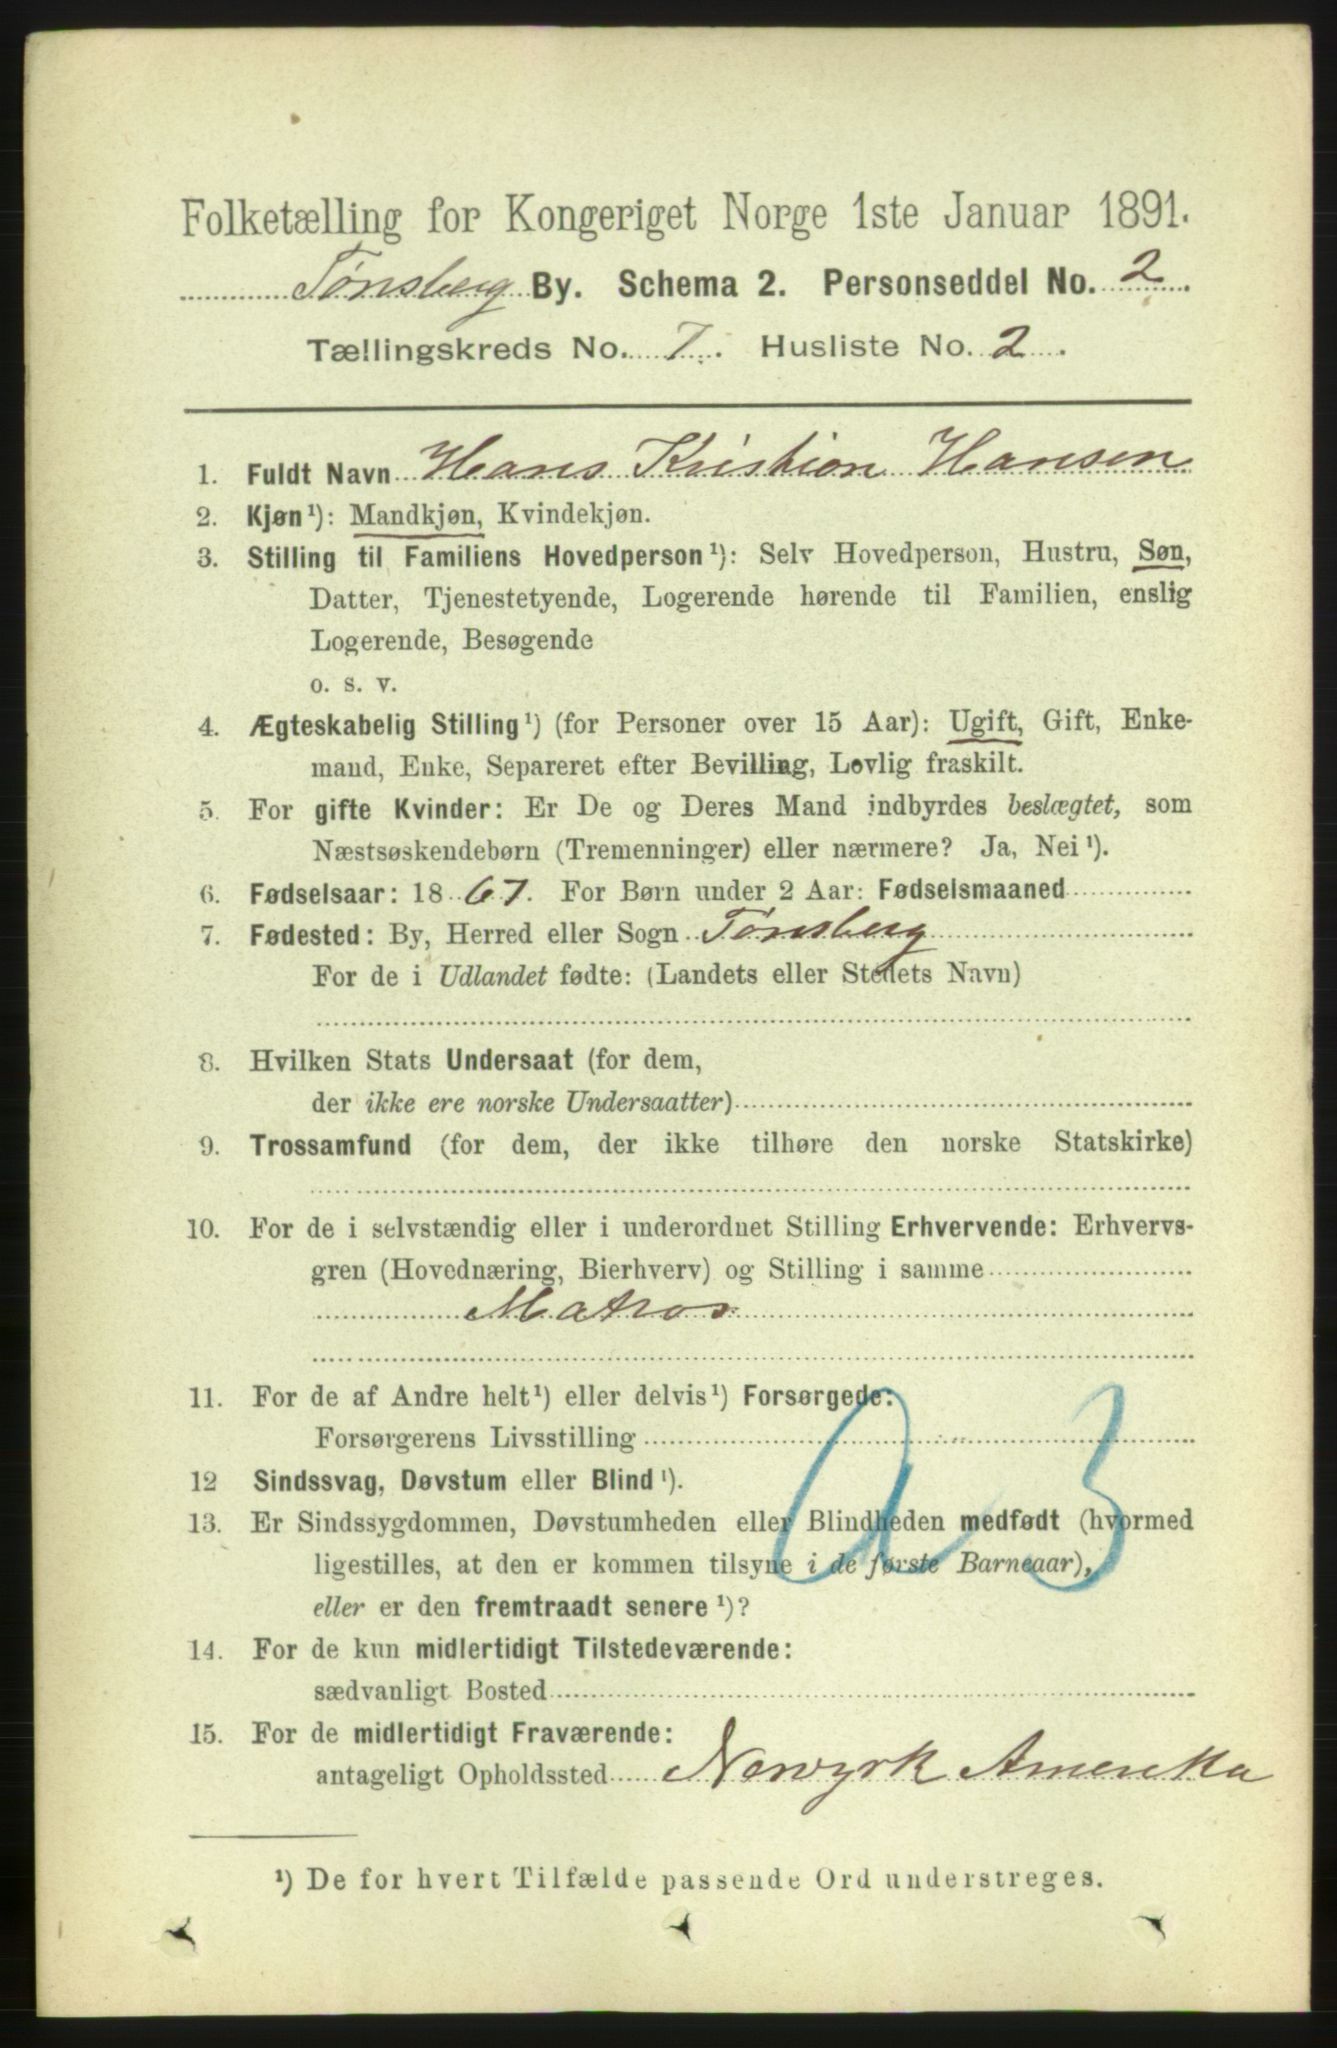 Folketælling for Kongeriget Norge 1ste Januar 1891.
Tønsberg By. Schema 2. Personseddel No. 2.
Tællingskreds No. 7. Husliste No. 2.
1. Fuldt Navn Hans Kristian Hansen
2. Kjøn¹): Mandkjøn, Kvindekjøn.
3. Stilling til Familiens Hovedperson¹): Selv Hovedperson, Hustru, Søn,
Datter, Tjenestetyende, Logerende hørende til Familien, enslig
Logerende, Besøgende
o. s. v.
4. Ægteskabelig Stilling¹) (for Personer over 15 Aar): Ugift, Gift, Enke-
mand, Enke, Separeret efter Bevilling, Lovlig fraskilt.
5. For gifte Kvinder: Er De og Deres Mand indbyrdes beslægtet, som
Næstsøskendebørn (Tremenninger) eller nærmere? Ja, Nei¹).
6. Fødselsaar: 1867. For Børn under 2 Aar: Fødselsmaaned
7. Fødested: By, Herred eller Sogn Tønsberg
For de i Udlandet fødte: (Landets eller Stedets Navn)
8. Hvilken Stats Undersaat (for dem,
der ikke ere norske Undersaatter)
9. Trossamfund (for dem, der ikke tilhøre den norske Statskirke)
10. For de i selvstændig eller i underordnet Stilling Erhvervende: Erhvervs-
gren (Hovednæring, Bierhverv) og Stilling i samme
Matros
11. For de af Andre helt¹) eller delvis¹) Forsørgede:
Forsørgerens Livsstilling
a 3
12 Sindssvag, Døvstum eller Blind¹).
13. Er Sindssygdommen, Døvstumheden eller Blindheden medfødt (hvormed
ligestilles, at den er kommen tilsyne i de første Barneaar),
eller er den fremtraadt senere¹)?
14. For de kun midlertidigt Tilstedeværende:
sædvanligt Bosted
15. For de midlertidigt Fraværende:
antageligt Opholdssted Newyrk Amerika
¹) De for hvert Tilfælde passende Ord understreges.